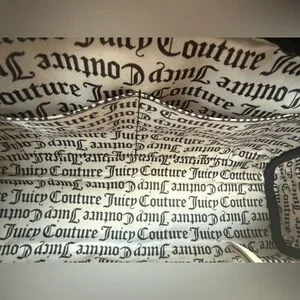 Juicy Couture Juicy
Juicy Couture
Couture Juicy Couture
Juicy Couture Juicy
Juicy Couture Juicy Couture
Couture Juicy Couture
Juicy Couture Juicy Couture
Couture Juicy Couture
Juicy Couture Juicy Couture
Couture Juicy Couture
Juicy Couture Juicy Couture
Couture Juicy